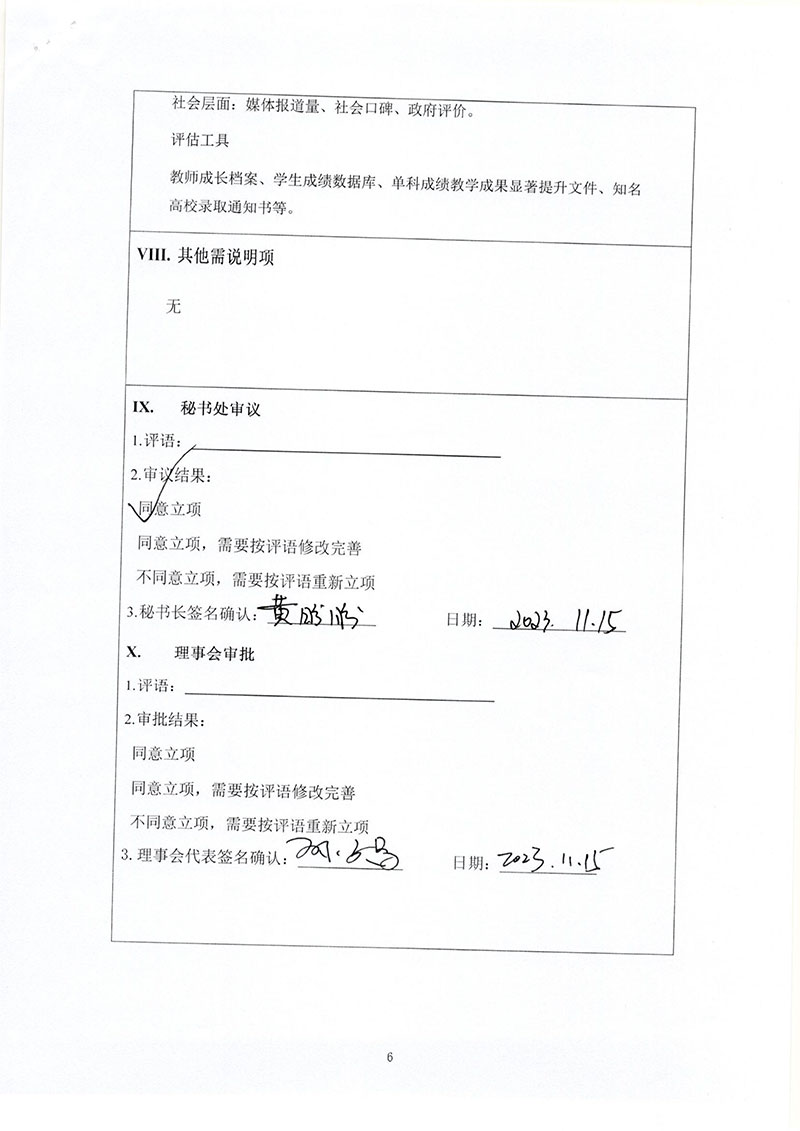 社会层面：媒体报道量、社会口碑、政府评价。
评估工具
教师成长档案、学生成绩数据库、单科成绩教学成果显著提升文件、知名
高校录取通知书等。
VIII. 其他需说明项
无
IX. 秘书处审议
1.评语：
2.审议结果：
同意立项
同意立项，需要按评语修改完善
不同意立项，需要按评语重新立项
3.秘书长签名确认：黄 日期：2023. 11.15
X. 理事会审批
1.评语：
2.审批结果：
同意立项
同意立项，需要按评语修改完善
不同意立项，需要按评语重新立项
3. 理事会代表签名确认： 日期：2023.11.15
6